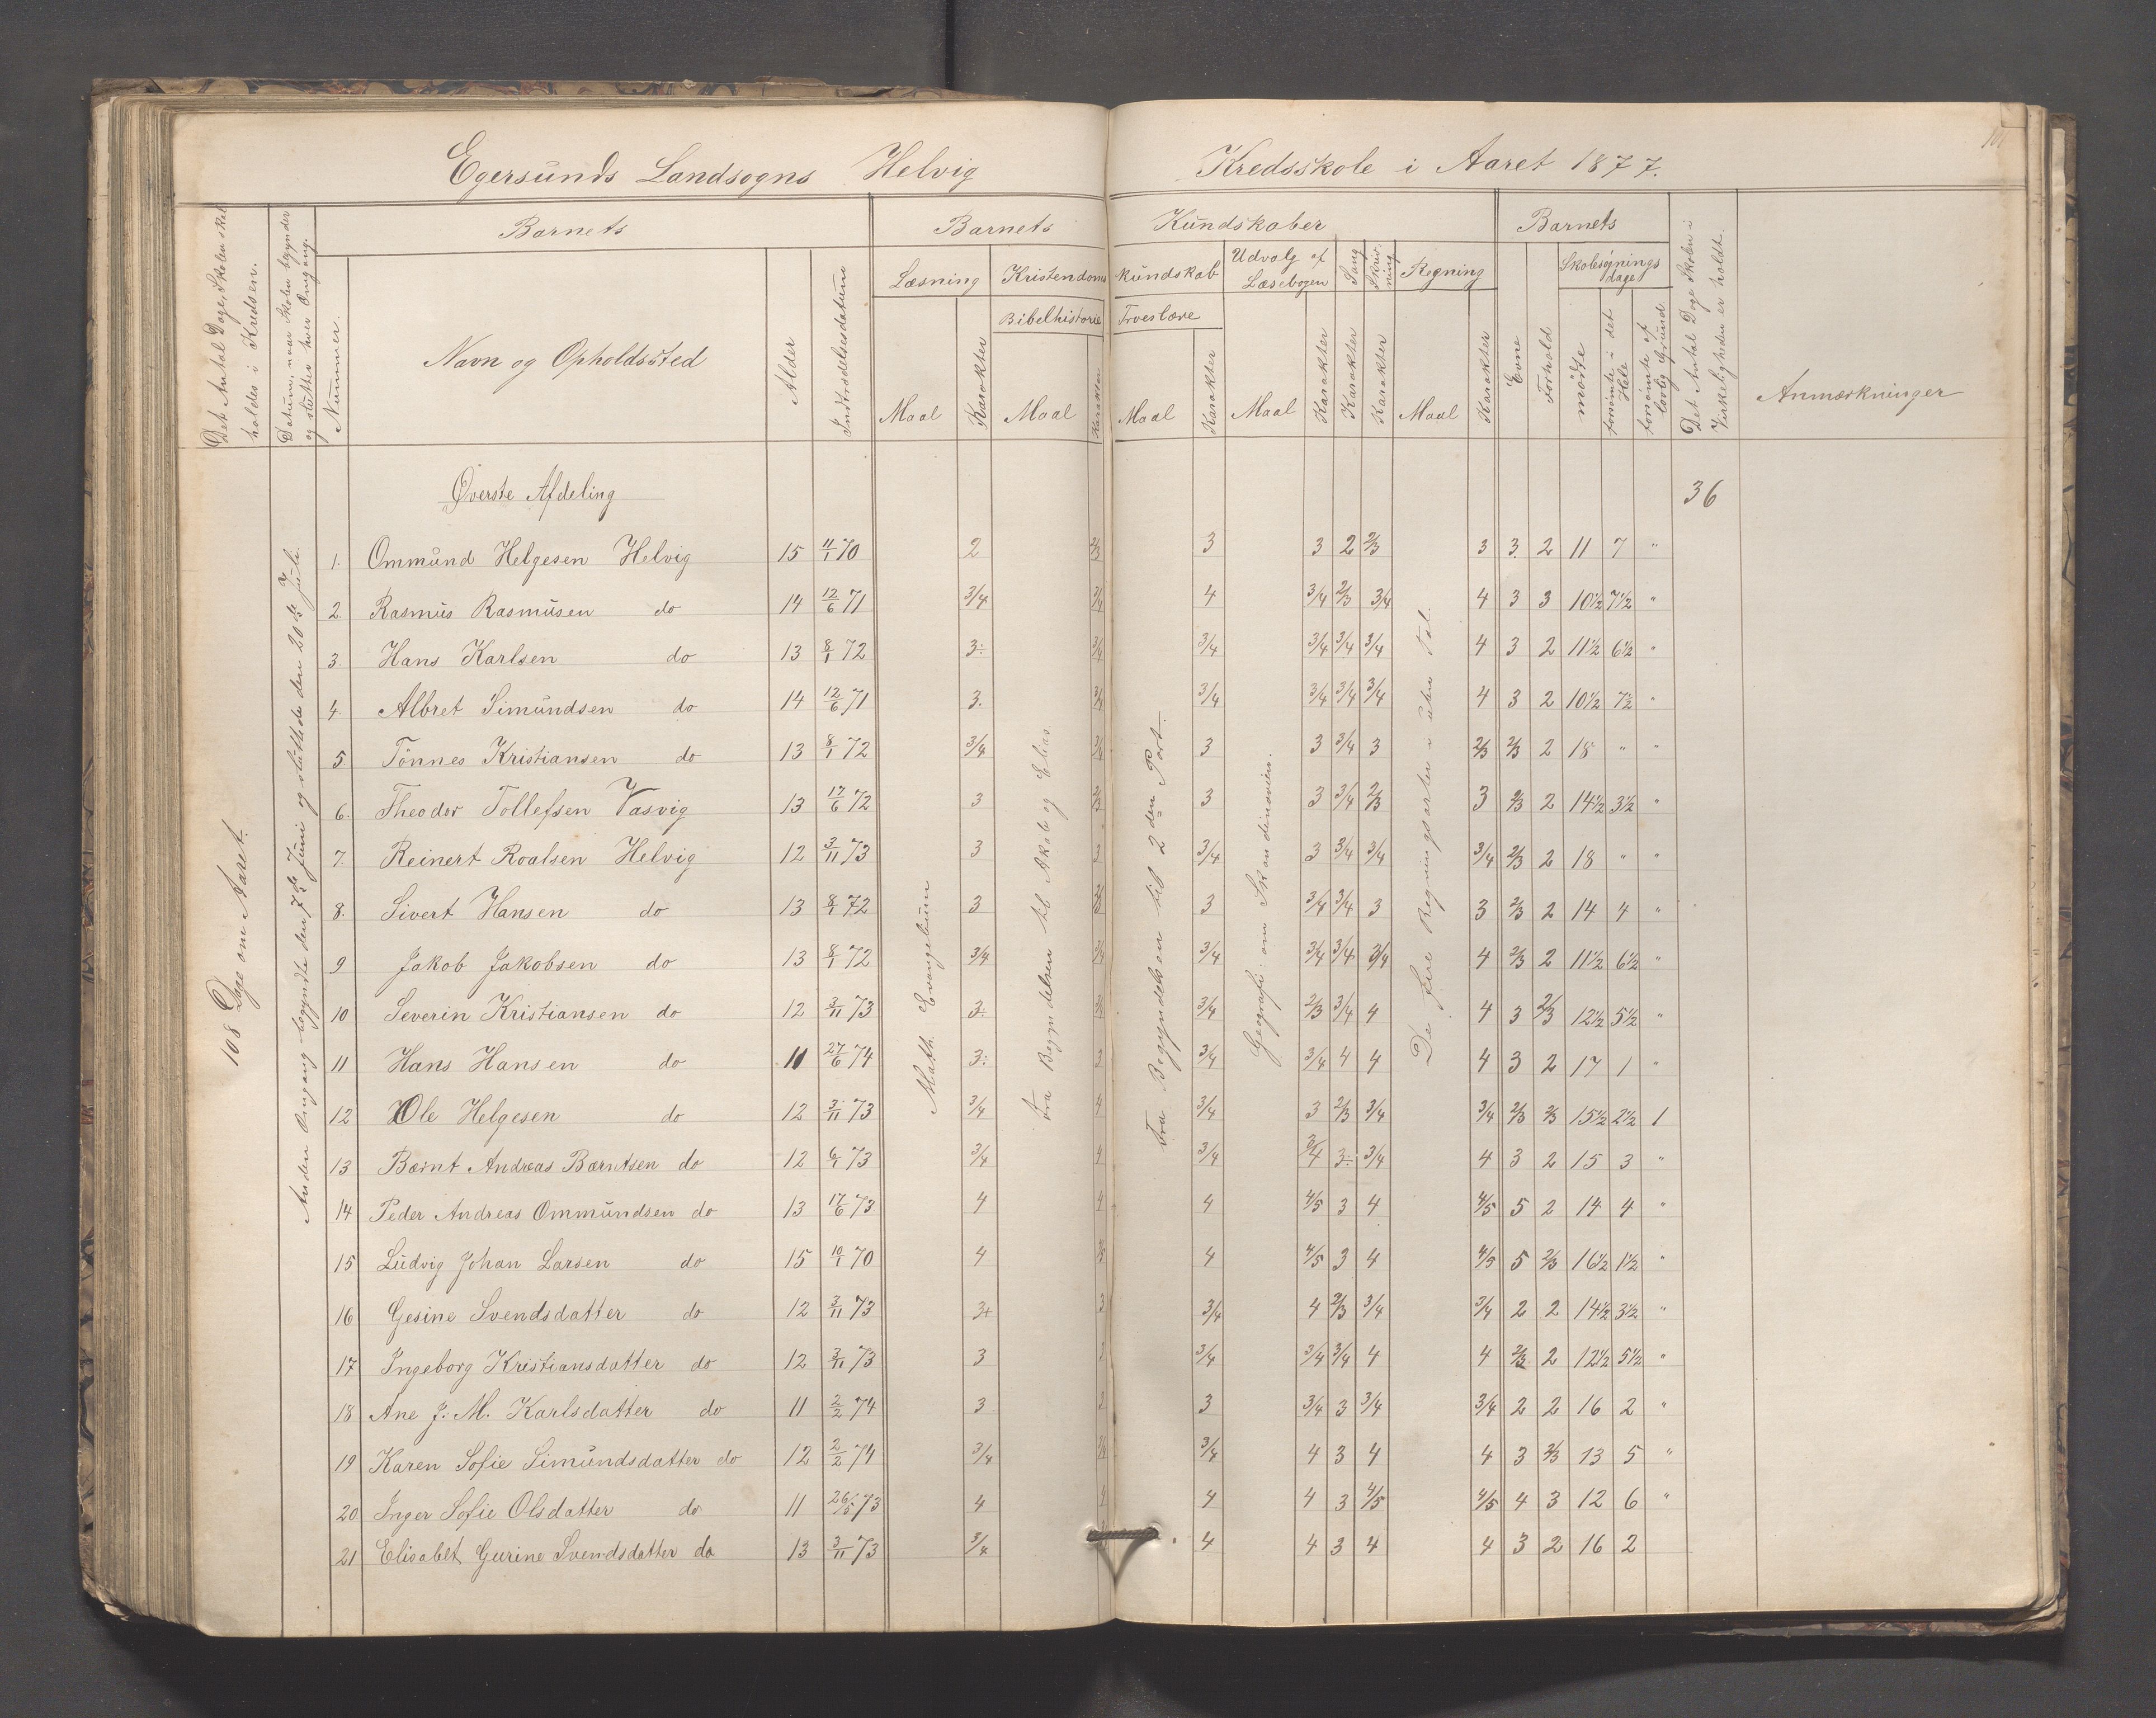 Egersunds Landsogns Helvig Kredsskole i Aaret 1877.
Det Antal Dage, Skolen skal holdes i Kredsen.
Datum, naar Skolen begynder og slutter hver Omgang.
Barnets
Nummer.
Navn og Opholdssted
Alder
Indtrædelsesdatum
Barnets Kundskaber
Læsning
Maal
Karakter
Kristendomskundskab
Bibelhistorie
Maal
Karakter
Troeslære
Maal
Karakter
Udvalg af Læsebogen
Maal
Karakter
Sang
Karakter
Skrivning
Karakter
Regning
Maal
Karakter
Barnets
Evne
Forhold
Skolesøgningsdage
mødte
forsømte i det Hele
forsømte af lovlig Grund
Det Antal Dage Skolen i Virkeligheden er holdt.
Anmærkninger
Øverste Afdeling
36
108 Dage om Aaret.
Anden Omgang begyndte den 7de Juni og sluttede den 20de Juli.
Math. Evangelium
Fra Begyndelsen til Akab og Elias.
Fra Begyndelsen til 2den Part.
Geografi: om Skandinavien.
De fire Regningsarter i uben Tal.
1. Ommund Helgesen Helvig 15 11/1 70 2 2/3 3 3 2 2/3 3 3 2 11 7 "
2. Rasmus Rasmusen do 14 12/6 71 3/4 3/4 4 3/4 2/3 3/4 4 3 3 10½ 7½ "
3. Hans Karlsen do 13 8/1 72 3÷ 3/4 3/4 3/4 3/4 3/4 4 3 2 11½ 6½ "
4. Albret Simundsen do 14 12/6 71 3. 3/4 3/4 3/4 3/4 3/4 4 3 2 10½ 7½ "
5 Tönnes Kristiansen do 13 8/1 72 3/4 3/4 3 3 3/4 3 2/3 2/3 2 18 " "
6. Theodor Tollefsen Vasvig 13 17/6 72 3 2/3 3 3 3/4 2/3 3 2/3 2 14½ 3½ "
7. Reinert Roalsen Helvig 12 3/11 73 3 3 3/4 3 3/4 3/4 3/4 2/3 2 18 " "
8. Sivert Hansen do 13 8/1 72 3 2/3 3 3/4 3/4 3 3 2/3 2 14 4 "
9 Jakob Jakobsen do 13 8/1 72 3/4 3/4 3/4 3/4 3/4 3/4 4 2/3 2 11½ 6½ "
10 Severin Kristiansen do 12 3/11 73 3÷ 3/4 3/4 2/3 3/4 4 4 3 2/3 12½ 5½ "
11 Hans Hansen do 11 27/6 74 3÷ 3 3/4 3/4 4 4 4 3 2 17 1 "
12 Ole Helgesen do 12 3/11 73 3/4 4 3/4 3 2/3 3/4 3/4 2/3 2/3 15½ 2½ 1
13 Bærnt Andreas Bærntsen do 12 6/1 73 3/4 4 3/4 3/4 3÷ 3/4 4 3 2 15 3 "
14 Peder Andreas Ommundsen do 13 17/6 73 4 4 4 4/5 3 4 4/5 5 2 14 4 "
15 Ludvig Johan Larsen do 15 10/1 70 4 4 4/5 3 4 4/5 5 2/3 16½ 1½ "
16 Gesine Svendsdatter do 12 3/11 73 3+ 3 3/4 4 2/3 3/4 3/4 2 2 14½ 3½ "
17 Ingeborg Kristiansdatter do 12 3/11 73 3 3/4 3/4 3/4 4 4 2/3 2 12½ 5½ "
18 Ane J. M. Karlsdatter do 11 2/2 74 3 3 3/4 3 3/4 3/4 2 2 16 2 "
19 Karen Sofie Simundsdatter do 12 2/2 74 3/4 3/4 4 3 4 4 3 2/3 13 5 "
20 Inger Sofie Olsdatter do 11 26/5 73 4 4 4 4 3 4/5 4/5 4 3 12 6 "
21 Elisabet Gurine Svendsdatter do 13 3/11 73 3/4 4 4 3 4 4 3 2 16 2